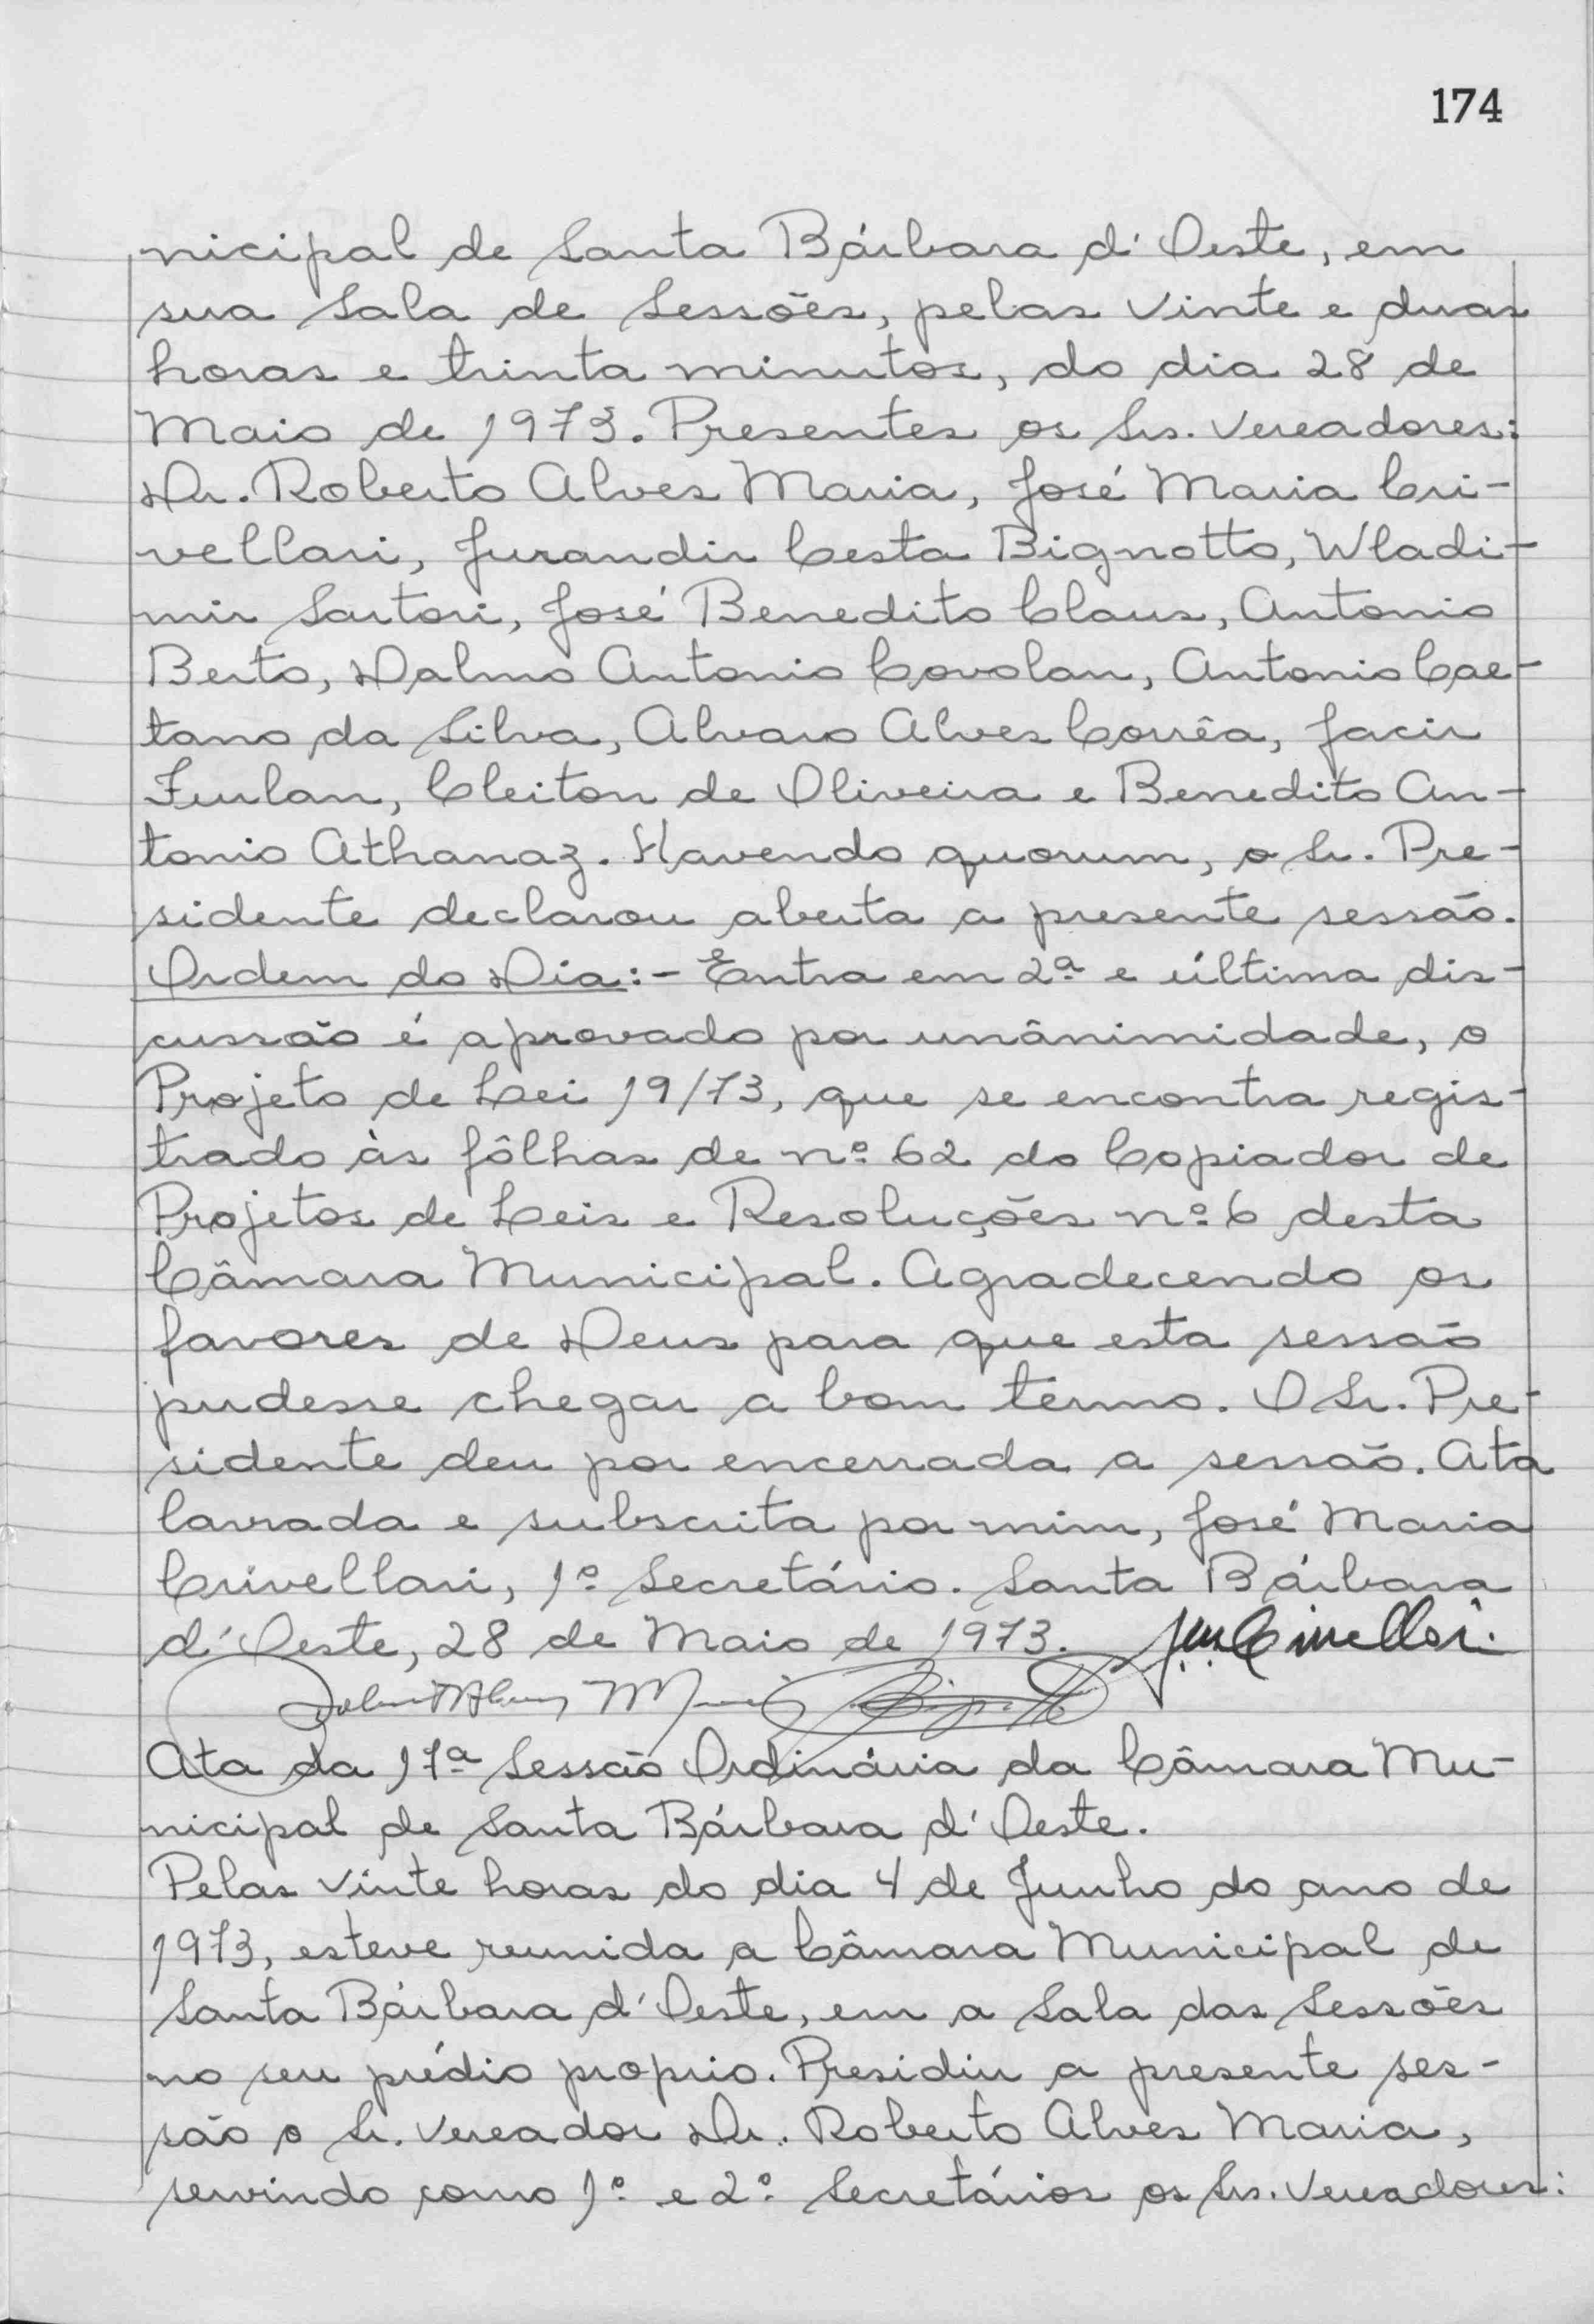 174
nicipal de Santa Bárbara d'Oeste, em
sua Sala de Sessões, pelas vinte e duas
horas e trinta minutos, do dia 28 de
Maio de 1973. Presentes os Srs. Vereadores:
Dr. Roberto Alves Maria, José Maria Cri-
vellari, Jurandir Cesta Bignotto, Wladi-
mir Sartori, José Benedito Claus, Antonio
Berto, Dalmo Antonio Covolan, Antonio Cae-
tano da Silva, Alvaro Alves Corrêa, Jacir
Furlan, Cleiton de Oliveira e Benedito An-
tonio Athanaz. Havendo quorum, o Sr. Pre-
sidente declarou aberta a presente sessão.
Ordem do Dia:- Entra em 2ª e última dis-
cussão é aprovado por unânimidade, o
Projeto de Lei 19/73, que se encontra regis-
trado às fôlhas de nº 62 do Copiador de
Projetos de Leis e Resoluções nº 6 desta
Câmara Municipal. Agradecendo os
favores de Deus para que esta sessão
pudesse chegar a bom termo. O Sr. Pre-
sidente deu por encerrada a sessão. Ata
lavrada e subscrita por mim, José Maria
Crivellari, 1º Secretário. Santa Bárbara
d'Oeste, 28 de Maio de 1973.
Ata da 17ª Sessão Ordinária da Câmara Mu-
nicipal de Santa Bárbara d'Oeste.
Pelas vinte horas do dia 4 de Junho do ano de
1973, esteve reunida a Câmara Municipal de
Santa Bárbara d'Oeste, em a Sala das Sessões
no seu prédio proprio. Presidiu a presente ses-
são o Sr. Vereador Dr. Roberto Alves Maria,
servindo como 1º e 2º Secretários os Srs. Vereadores: